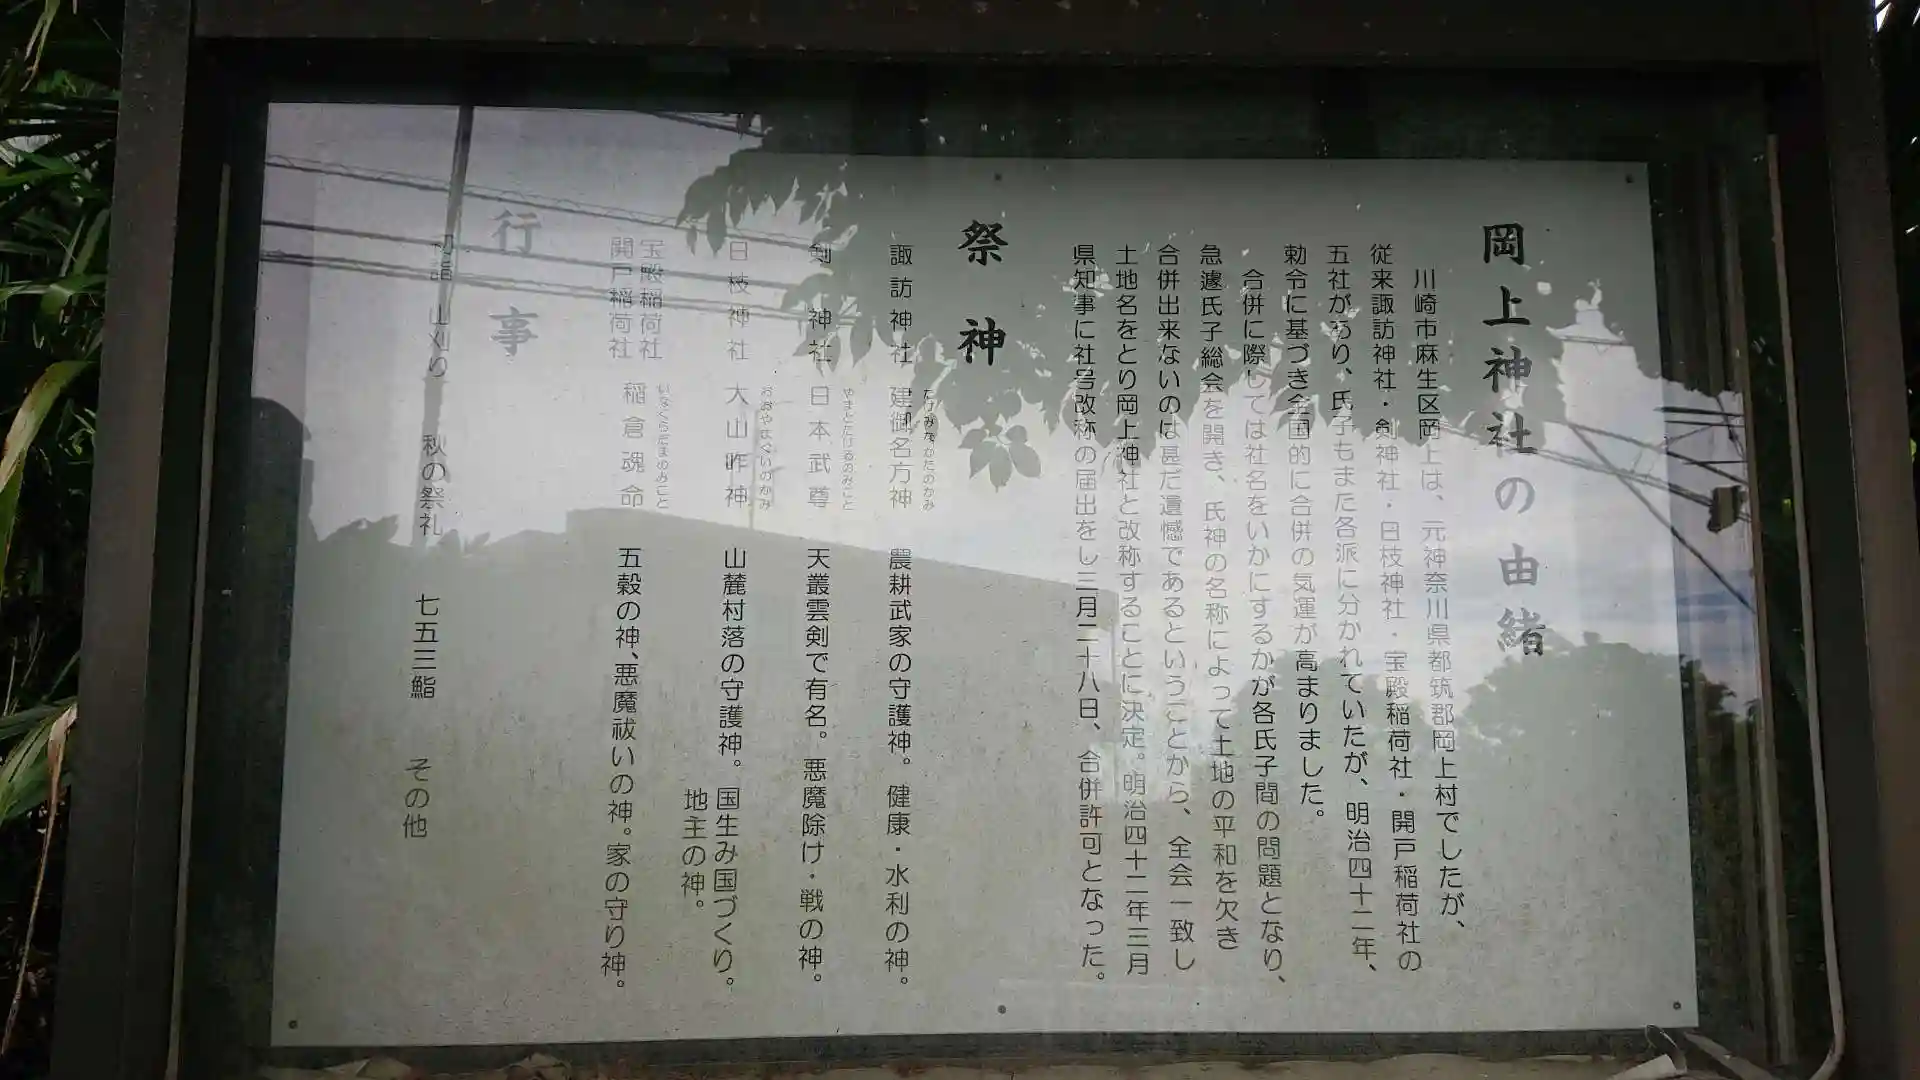 岡上神社の由緒
川崎市麻生区岡上は、元神奈川県都筑郡岡上村でしたが、
従来諏訪神社・剣神社・日枝神社・宝殿稲荷社・開戸稲荷社の
五社があり、氏子もまた各派に分かれていたが、明治四十二年、
勅令に基づき全国的に合併の気運が高まりました。
合併に際しては社名をいかにするかが各氏子間の問題となり、
急遽氏子総会を開き、氏神の名称によって土地の平和を欠き
合併出来ないのは甚だ遺憾であるということから、全会一致し
土地名をとり岡上神社と改称することに決定。明治四十二年三月
県知事に社号改称の届出をし三月二十八日、合併許可となった。
祭神
諏訪神社 建御名方神 農耕武家の守護神。健康・水利の神。
たけみなかたのかみ
剣神社 日本武尊 天叢雲剣で有名。悪魔除け・戦の神。
やまとたけるのみこと
日枝神社 大山咋神 山麓村落の守護神。国生み国づくり。
おおやまぐいのかみ
地主の神。
宝殿稲荷社
開戸稲荷社 稲倉魂命 五穀の神、悪魔祓いの神。家の守り神。
いなくらだまのみこと
行事
初詣 山刈り 秋の祭礼 七五三詣 その他